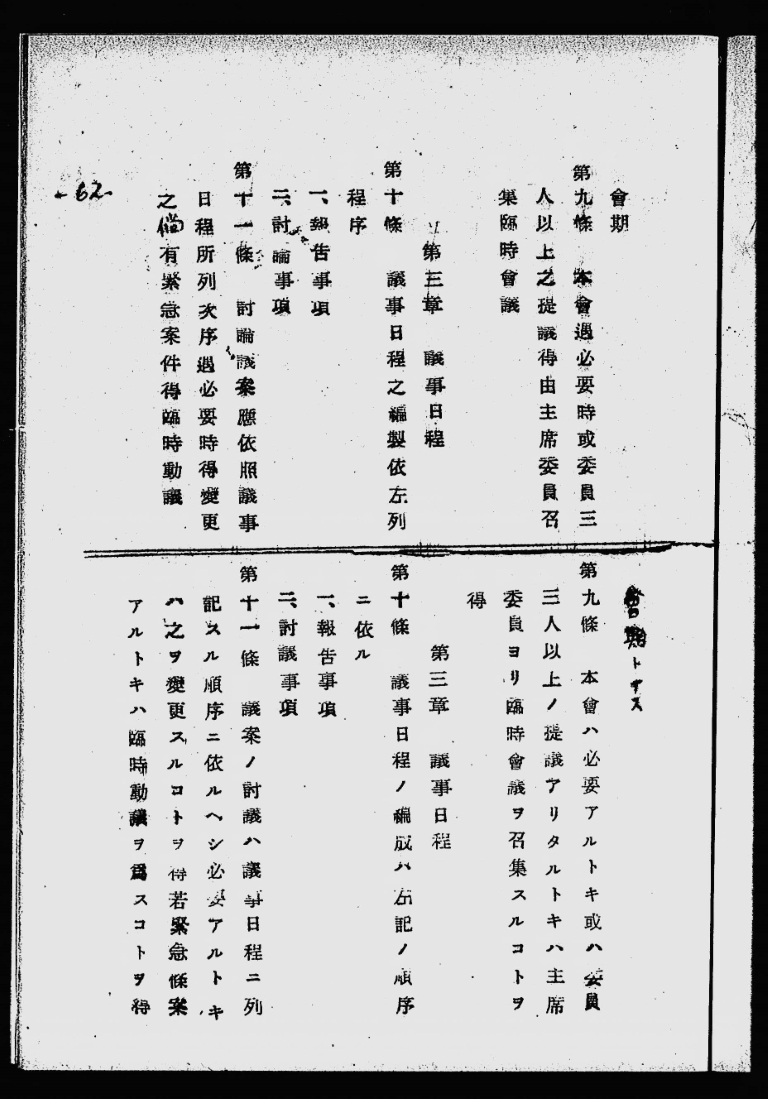 會期
第九條　本會遇必要時或委員三
人以上之提議得由主席委員召
集臨時會議
第三章　議事日程
第十條　議事日程之編製依左列
程序
一、報告事項
二、討論事項
第十一條　討論議案應依照議事
日程所列次序遇必要時得變更
之倘有緊急案件得臨時動議
-62-
會期トナス
第九條　本會ハ必要アルトキ或ハ委員
三人以上ノ提議アリタルトキハ主席
委員ヨリ臨時會議ヲ召集スルコトヲ
得
第三章　議事日程
第十條　議事日程ノ編成ハ左記ノ順序
ニ依ル
一、報告事項
二、討議事項
第十一條　議案ノ討議ハ議事日程ニ列
記スル順序ニ依ルヘシ必要アルトキ
ハ之ヲ變更スルコトヲ得若緊急條案
アルトキハ臨時動議ヲ爲スコトヲ得